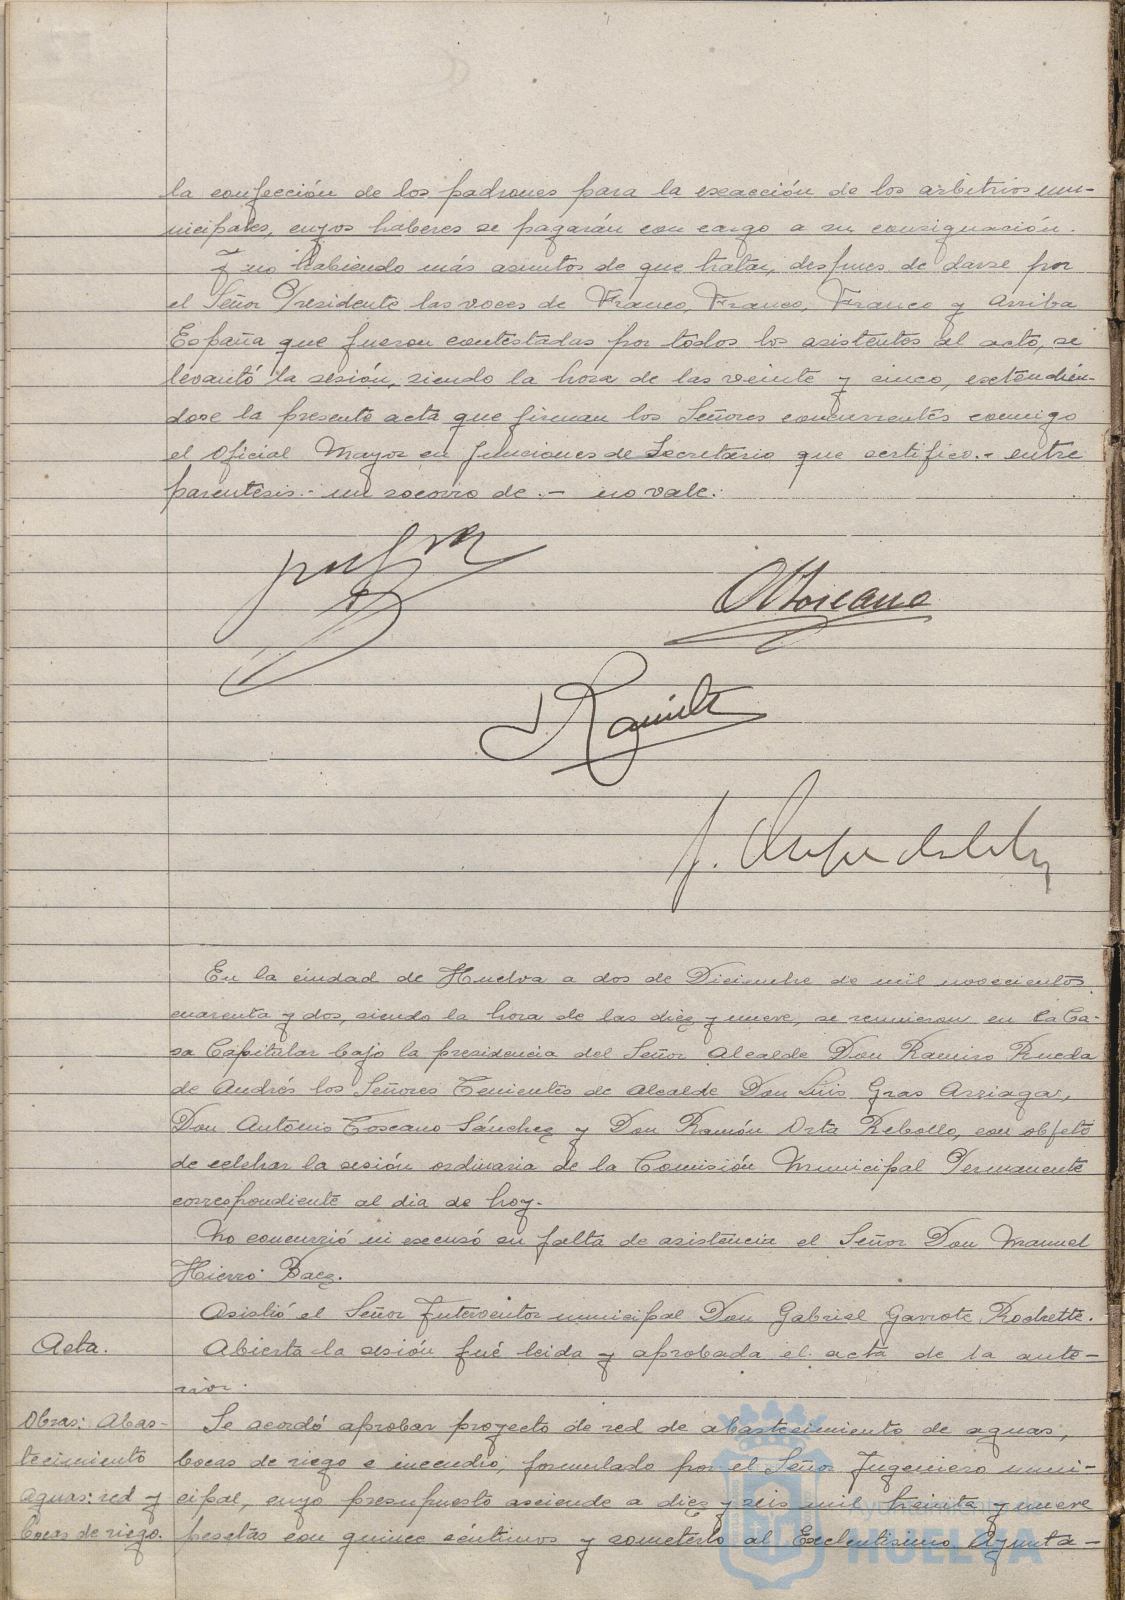 la confección de los padrones para la exacción de los arbitrios mu-
nicipales, cuyos haberes se pagarán con cargo a su consignación.
Y no habiendo más asuntos de que tratar, despues de darse por
el Señor Presidente las voces de Franco, Franco, Franco y Arriba
España que fueron contestadas por todos los asistentes al acto, se
levantó la sesión, siendo la hora de las veinte y cinco, extendién-
dose la presente acta que firman los Señores concurrentes conmigo
el Oficial Mayor en funciones de Secretario que certifico.- entre
parentesis.- un socorro de.- no vale.
En la ciudad de Huelva a dos de Diciembre de mil novecientos
cuarenta y dos, siendo la hora de las diez y nueve, se reunieron en la Ca-
sa Capitular bajo la presidencia del Señor Alcalde Don Ramiro Rueda
de Andrés los Señores Tenientes de Alcalde Don Luis Gras Arriaga,
Don Antonio Toscano Sánchez y Don Ramón Orta Rebollo, con objeto
de celebrar la sesión ordinaria de la Comisión Municipal Permanente
correspondiente al dia de hoy.
No concurrió ni excusó su falta de asistencia el Señor Don Manuel
Hierro Baez.
Asistió el Señor Interventor municipal Don Gabriel Garrote Rochette.
Acta. Abierta la sesión fué leida y aprobada el acta de la ante-
rior.
Obras: Abas- Se acordó aprobar proyecto de red de abastecimiento de aguas,
tecimiento bocas de riego e incendio, formulado por el Señor Ingeniero muni-
aguas: red y cipal, cuyo presupuesto asciende a diez y seis mil treinta y nueve
bocas de riego. pesetas con quince céntimos y someterlo al Exclentisimo Ayunta-
Ayuntamiento de
HUELVA